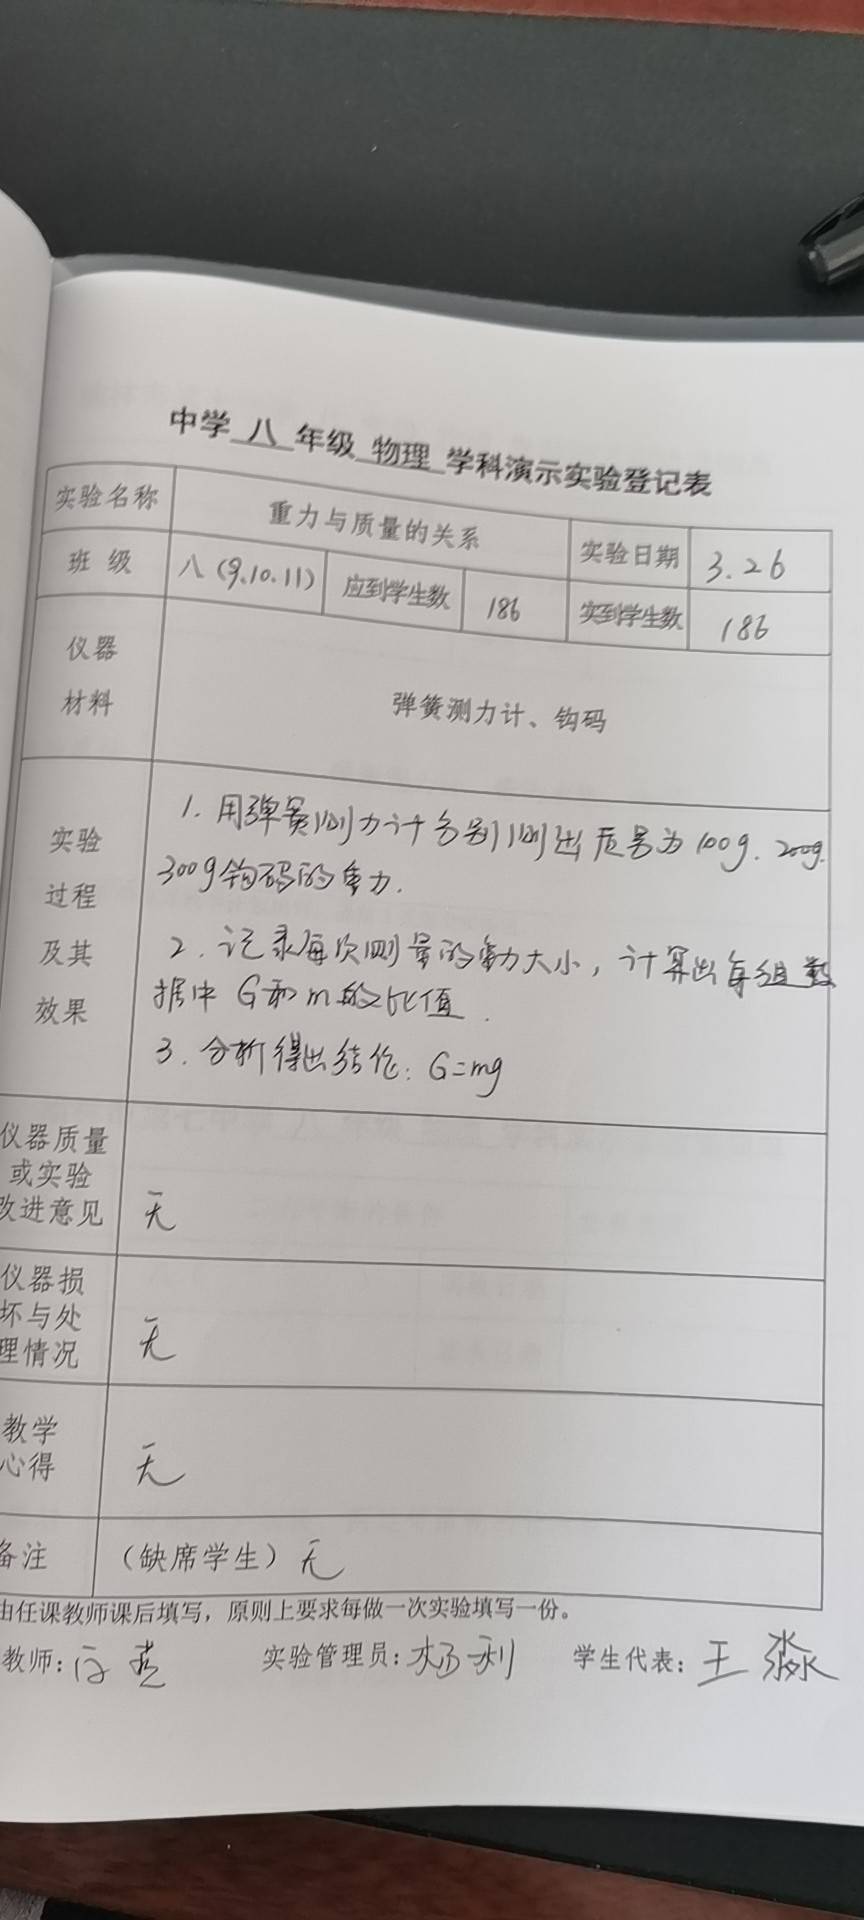 中学 八 年级 物理 学科演示实验登记表
实验名称 重力与质量的关系 实验日期 3.26
班 级 八(9.10.11) 应到学生数 186 实到学生数 186
仪器
材料
弹簧测力计、钩码
实验
过程
及其
效果
1. 用弹簧测力计分别测出质量为100g. 200g.
300g钩码的重力.
2. 记录每次测量的重力大小, 计算出每组数
据中 G和m的比值.
3. 分析得出结论: G=mg
仪器质量
或实验
改进意见
无
仪器损
坏与处
理情况
无
教学
心得
无
备注 (缺席学生) 无
由任课教师课后填写，原则上要求每做一次实验填写一份。
教师: 实验管理员: 杨利 学生代表: 王淼